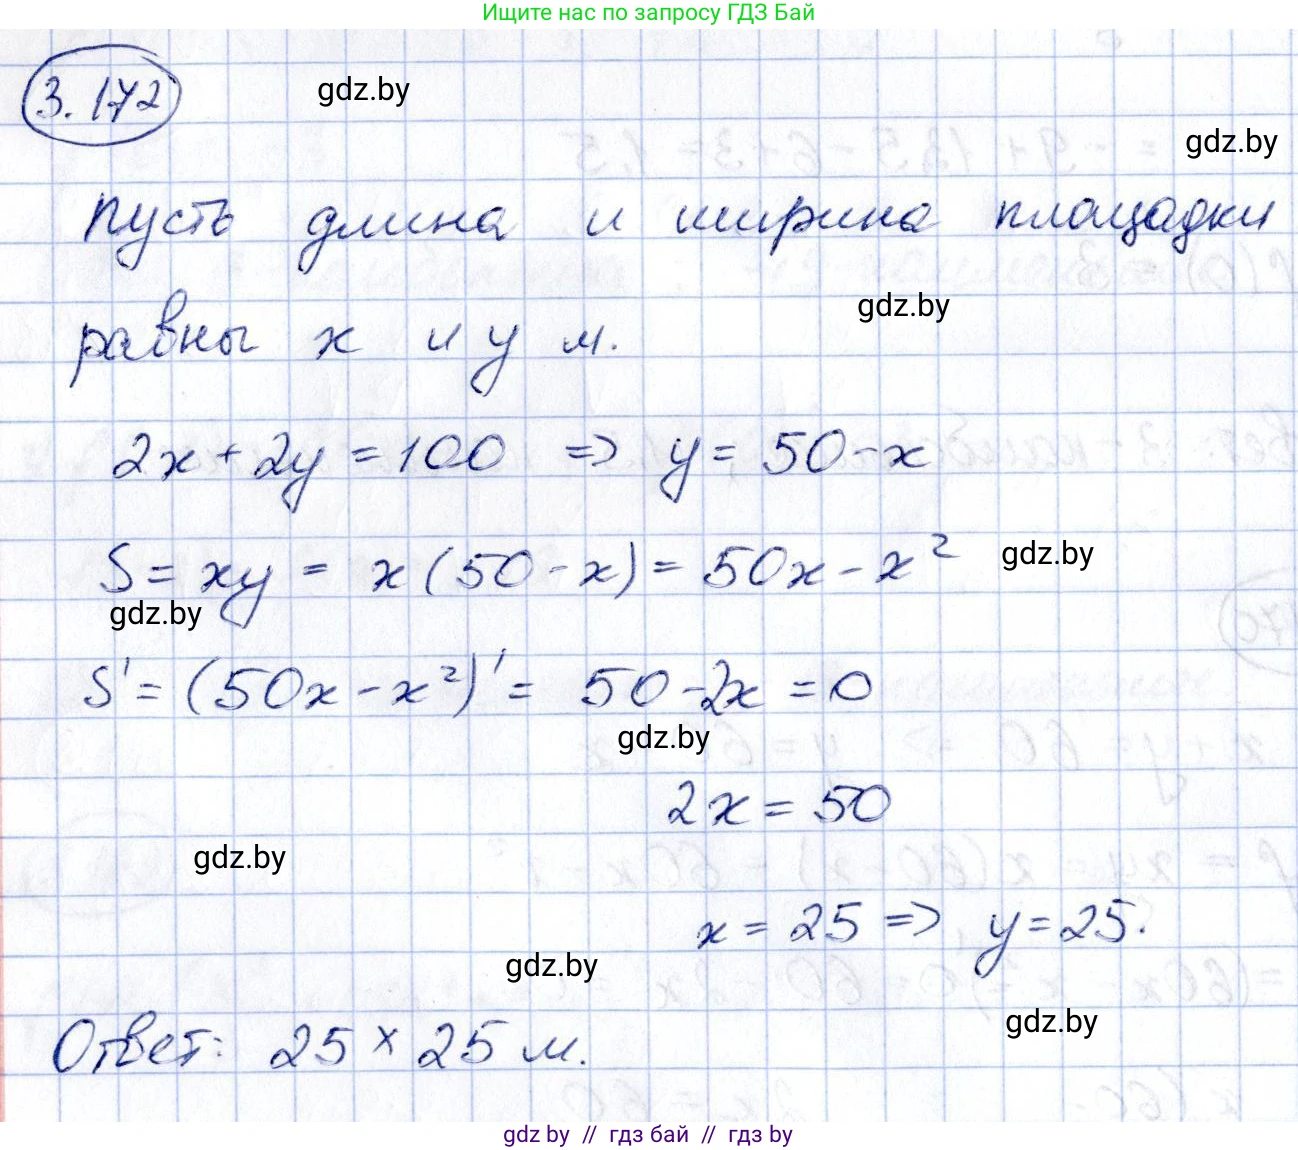 Ищите нас по запросу ГДЗ Бай
3.172
gdz.by
gdz.by
Пусть длина и ширина площадки
gdz.by
равны x и y м.
2x + 2y = 100 => y = 50 - x
S = xy = x(50 - x) = 50x - x²
gdz.by
gdz.by
S' = (50x - x²)' = 50 - 2x = 0
gdz.by
2x = 50
gdz.by
x = 25 => y = 25.
gdz.by
gdz.by
Ответ: 25 × 25 м.
gdz.by // гдз бай // гдз by